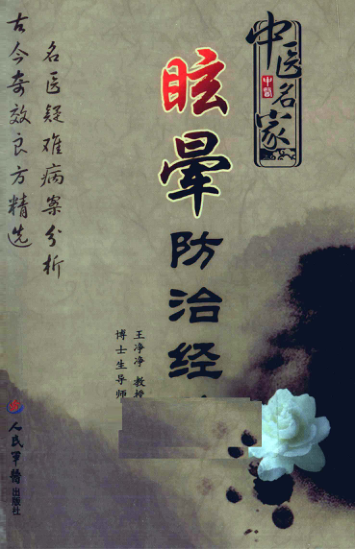 中医名家
中医
眩晕防治经
王净净 教授
博士生导师
名医疑难病案分析
古今奇效良方精选
人民军医出版社